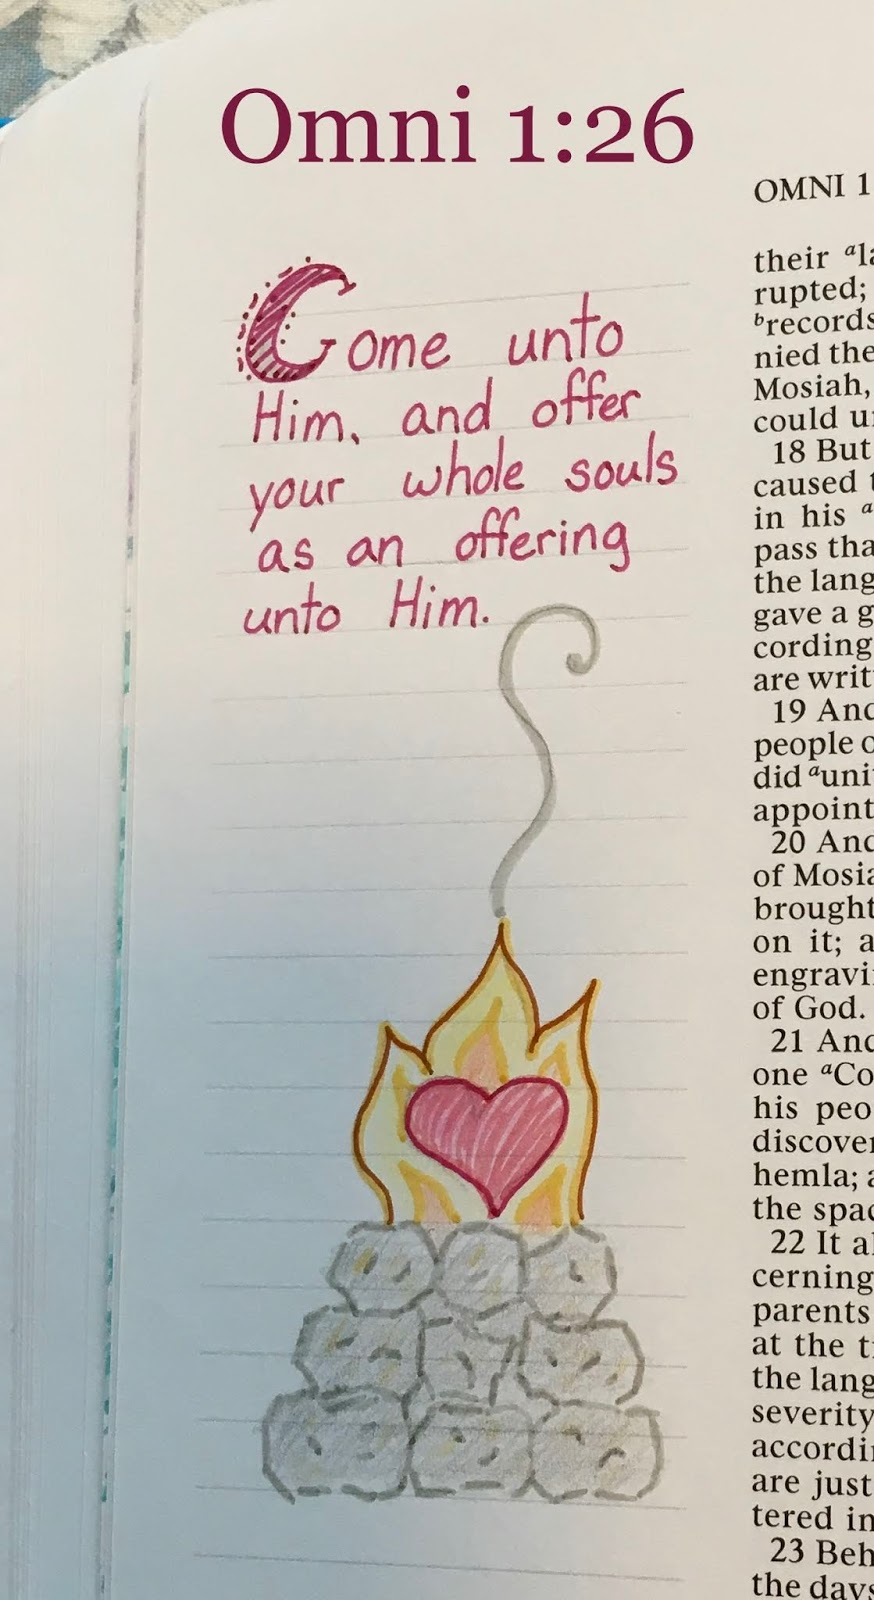 Omni 1:26
Come unto
Him, and offer
your whole souls
as an offering
unto Him.
OMNI 1
their a
rupted;
brecords
nied the
Mosiah,
could
18 But
caused
in his a
pass tha
the lang
gave a g
cording
are writ
19 And
people o
did auni
appoint
20 And
of Mosia
brought
on it; a
engravi
of God.
21 And
one aCo
his peo
discover
hemla; a
the spac
22 It al
cerning
parents
at the
the lang
severity
accordi
are just
tered in
23 Beh
the days